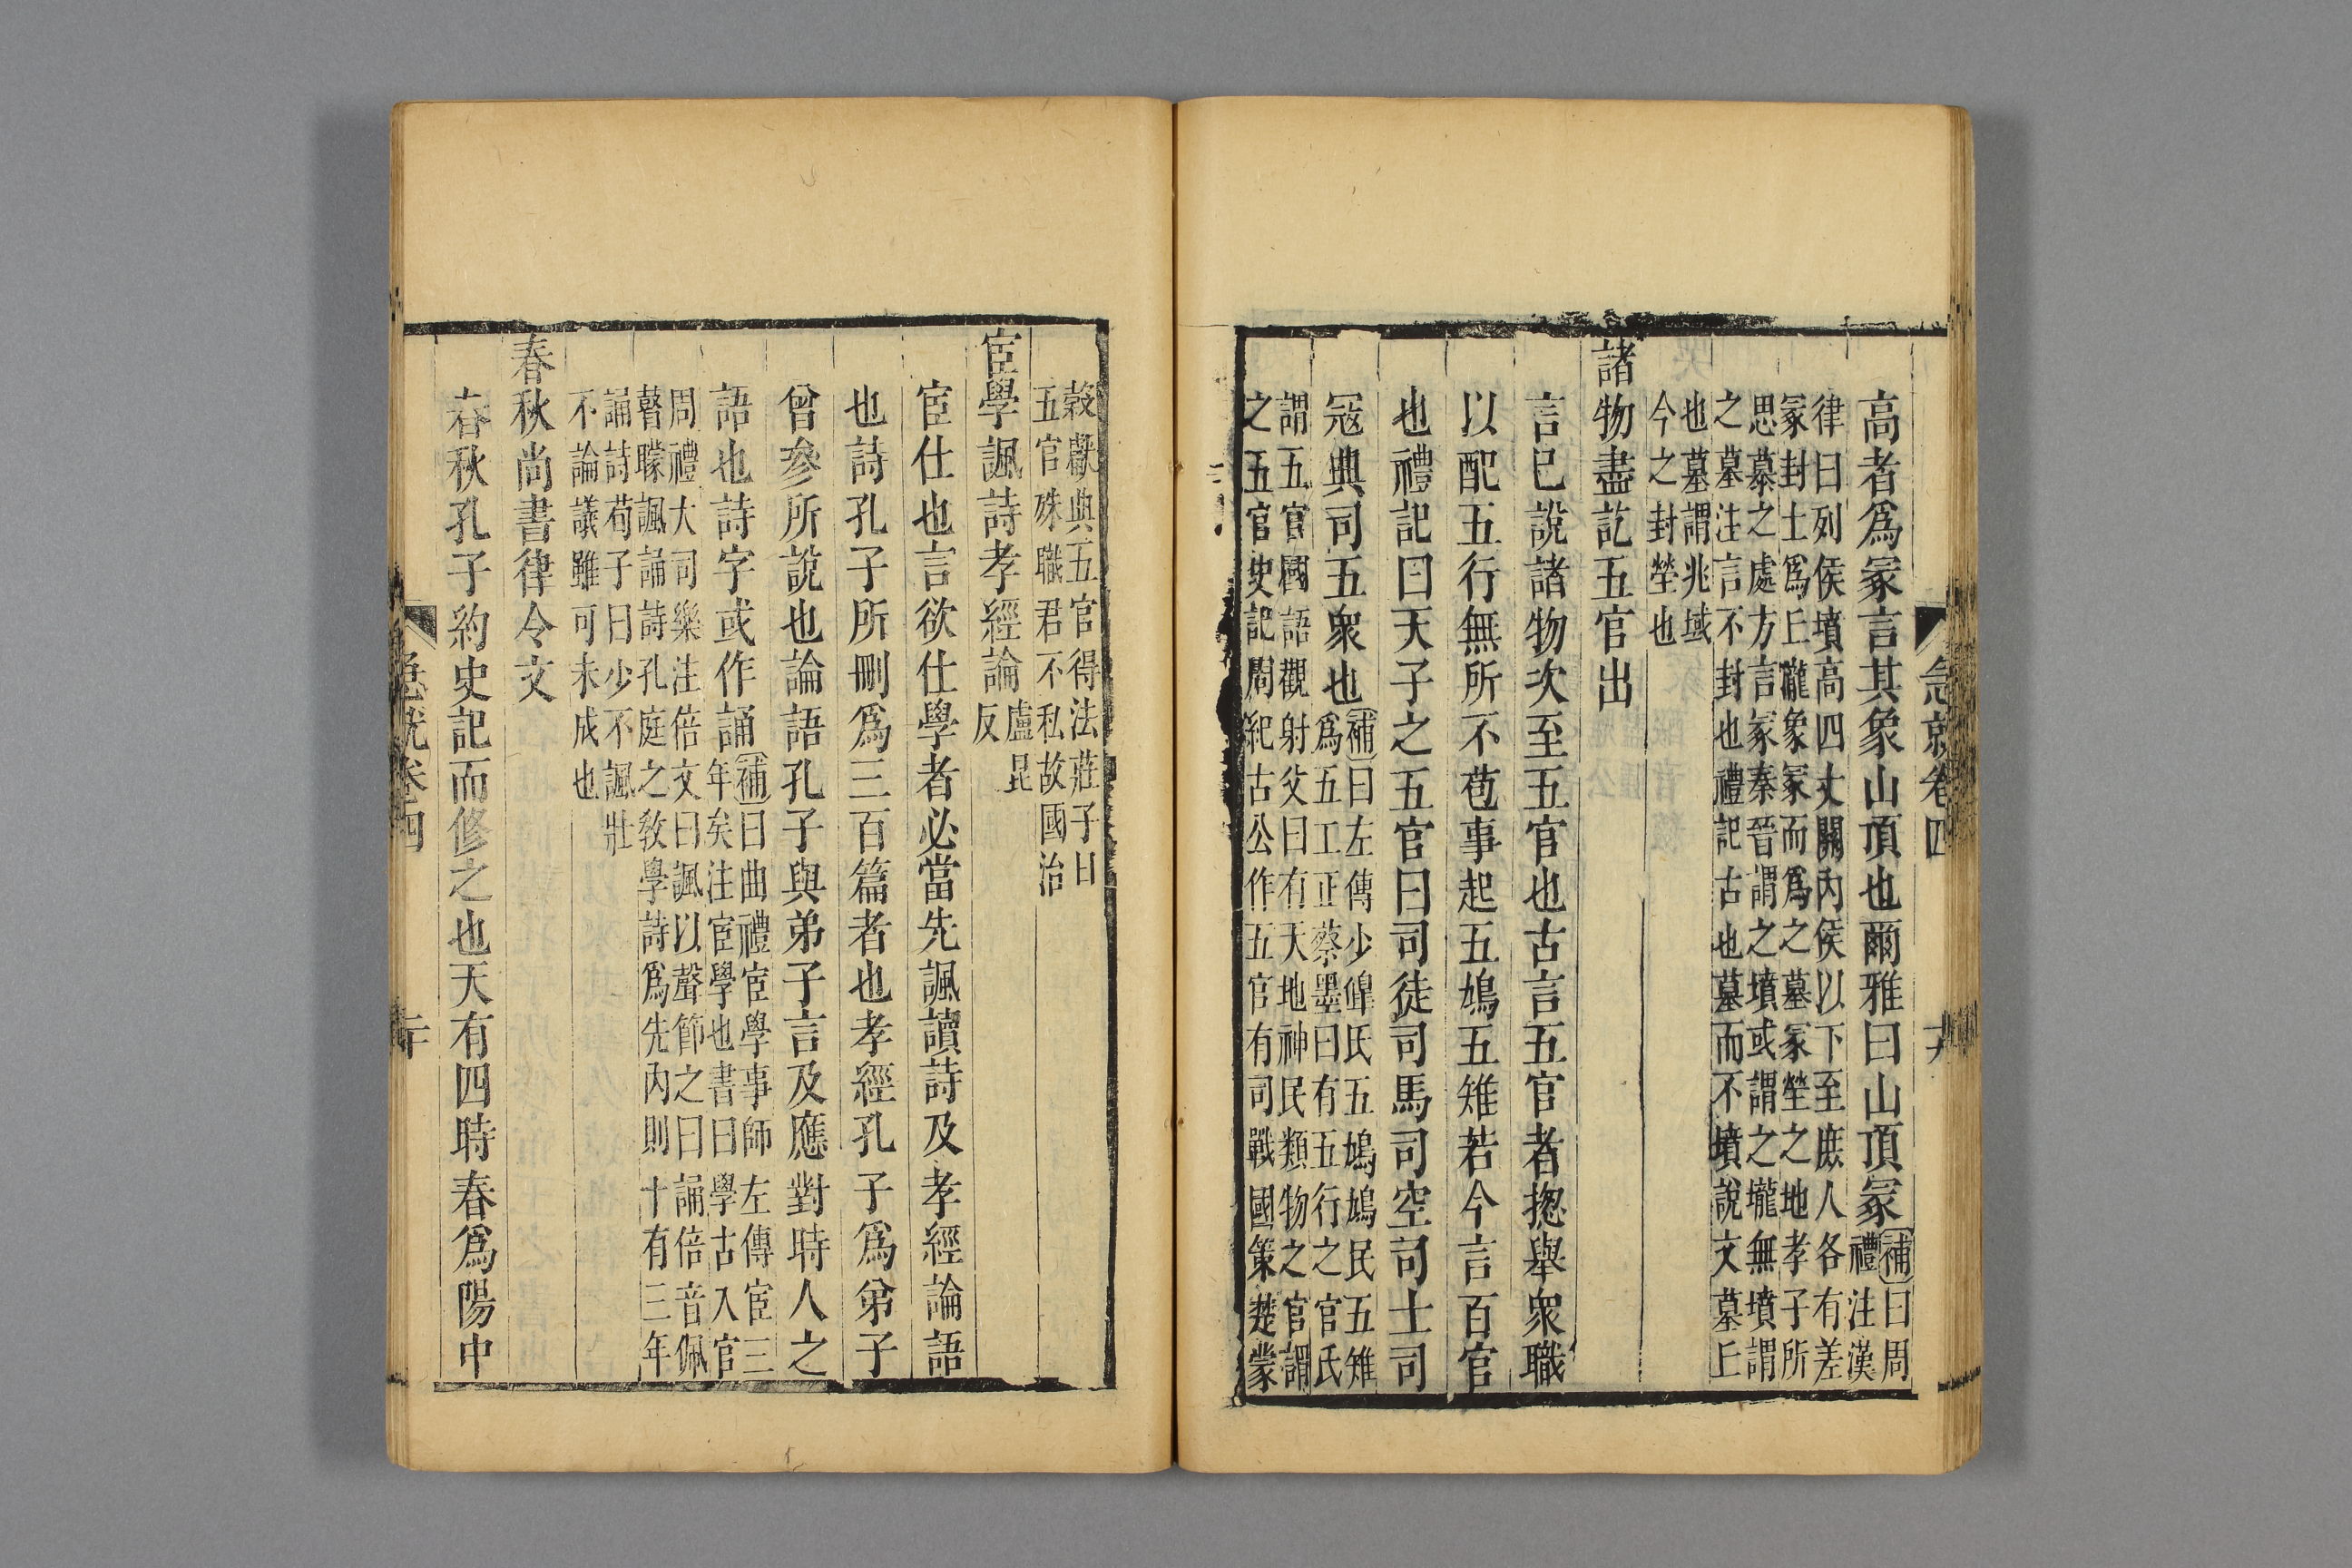 急就卷四
十九
高者爲冢言其象山頂也爾雅曰山頂冢補曰周
禮注漢
律曰列侯墳高四丈關內侯以下至庶人各有差
冢封土爲丘壠象冢而爲之墓冢塋之地孝子所
思慕之處方言冢秦晉謂之墳或謂之壠無墳謂
之墓注言不封也禮記古也墓而不墳說文墓丘
也墓謂兆域
今之封塋也
諸物盡訖五官出
言已說諸物次至五官也古言五官者揔舉衆職
以配五行無所不苞事起五鳩五雉若今言百官
也禮記曰天子之五官曰司徒司馬司空司士司
冦典司五衆也補曰左傳少皡氏五鳩鳩民五雉
爲五工正蔡墨曰有五行之官氏
謂五官國語觀射父曰有天地神民類物之官謂
之五官史記周紀古公作五官有司戰國策楚蒙
穀獻典五官得法莊子曰
五官殊職君不私故國治
宦學諷詩孝經論盧昆
反
宦仕也言欲仕學者必當先諷讀詩及孝經論語
也詩孔子所刪爲三百篇者也孝經孔子爲弟子
曾參所說也論語孔子與弟子言及應對時人之
語也詩字或作誦補曰曲禮宦學事師左傳宦三
年矣注宦學也書曰學古入官
周禮大司樂注倍文曰諷以聲節之曰誦倍音佩
瞽矇諷誦詩孔庭之敎學詩爲先內則十有三年
誦詩荀子曰少不諷壯
不論議雖可未成也
春秋尚書律令文
春秋孔子約史記而修之也天有四時春爲陽中
急就卷四
二十